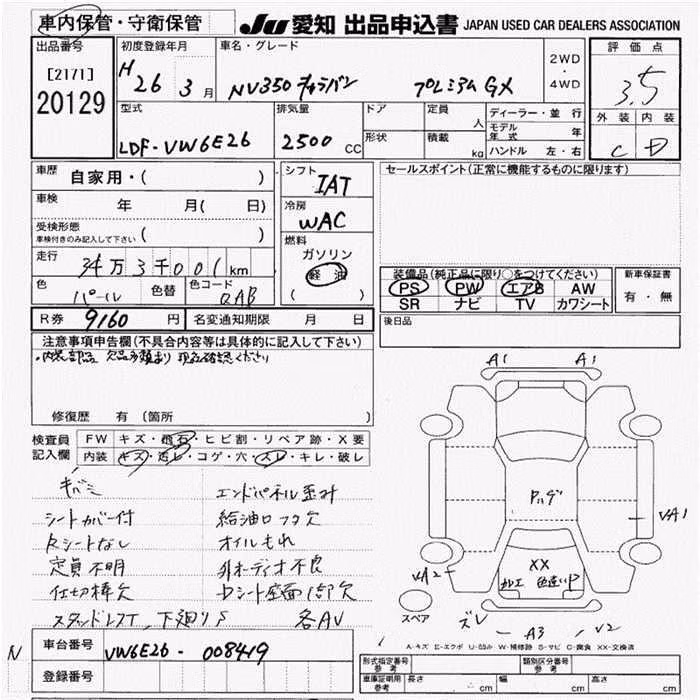 車内保管・守衛保管
JU愛知 出品申込書 JAPAN USED CAR DEALERS ASSOCIATION
出品番号
[2171]
20129
初度登録年月
H26 3月
車名・グレード
NV350 キャラバン プレミアムGX
2WD
・
4WD
評価点
3.5
外装 内装
C D
型式
LDF-VW6E26
排気量
2500 CC
ドア
形状
定員 人
積載 kg
ディーラー・並行
モデル年式 年
ハンドル 左・右
車歴
自家用・( )
車検 年 月( 日)
受検形態
車検付きのみ記入して下さい ( )
走行
34万3千001km
色
パール
色替
色コード
QAB
シフト
IAT
冷房
WAC
燃料
ガソリン
軽油
( )
セールスポイント(正常に機能するものに限ります)
装備品(純正品に限り○をつけてください)
PS PW エアB AW
SR ナビ TV カワシート
新車保証書
有・無
R券 9160円 名変通知期限 月 日
後日品
注意事項申告欄(不具合内容等は具体的に記入して下さい)
・内装部品 欠品多数あり 現車確認ください
修復歴 有 (箇所
検査員記入欄
FW キズ・飛石・ヒビ割・リペア跡・X要
内装 キズ・汚レ・コゲ・穴・スレ・キレ・破レ
キバミ エンドパネル歪み
シートカバー付 給油口フタ欠
Rシートなし オイルもれ
定員不明 外オーディオ不良
仕切棒欠 Dシート座面1部欠
スタッドレスT、下廻りS 各AV
A1 A1
ハルゲ
VA1
VA2
XX
加工 色違いP
スペア
ズレ A3 V2
A-キズ E-エクボ U-凹み W-補修跡 S-サビ C-腐食 XX-交換済
N
車台番号
VW6E26-008419
登録番号
形式指定番号 参考
類別区分番号 参考
車庫証明用 参考 長さ cm 幅 cm 高さ cm